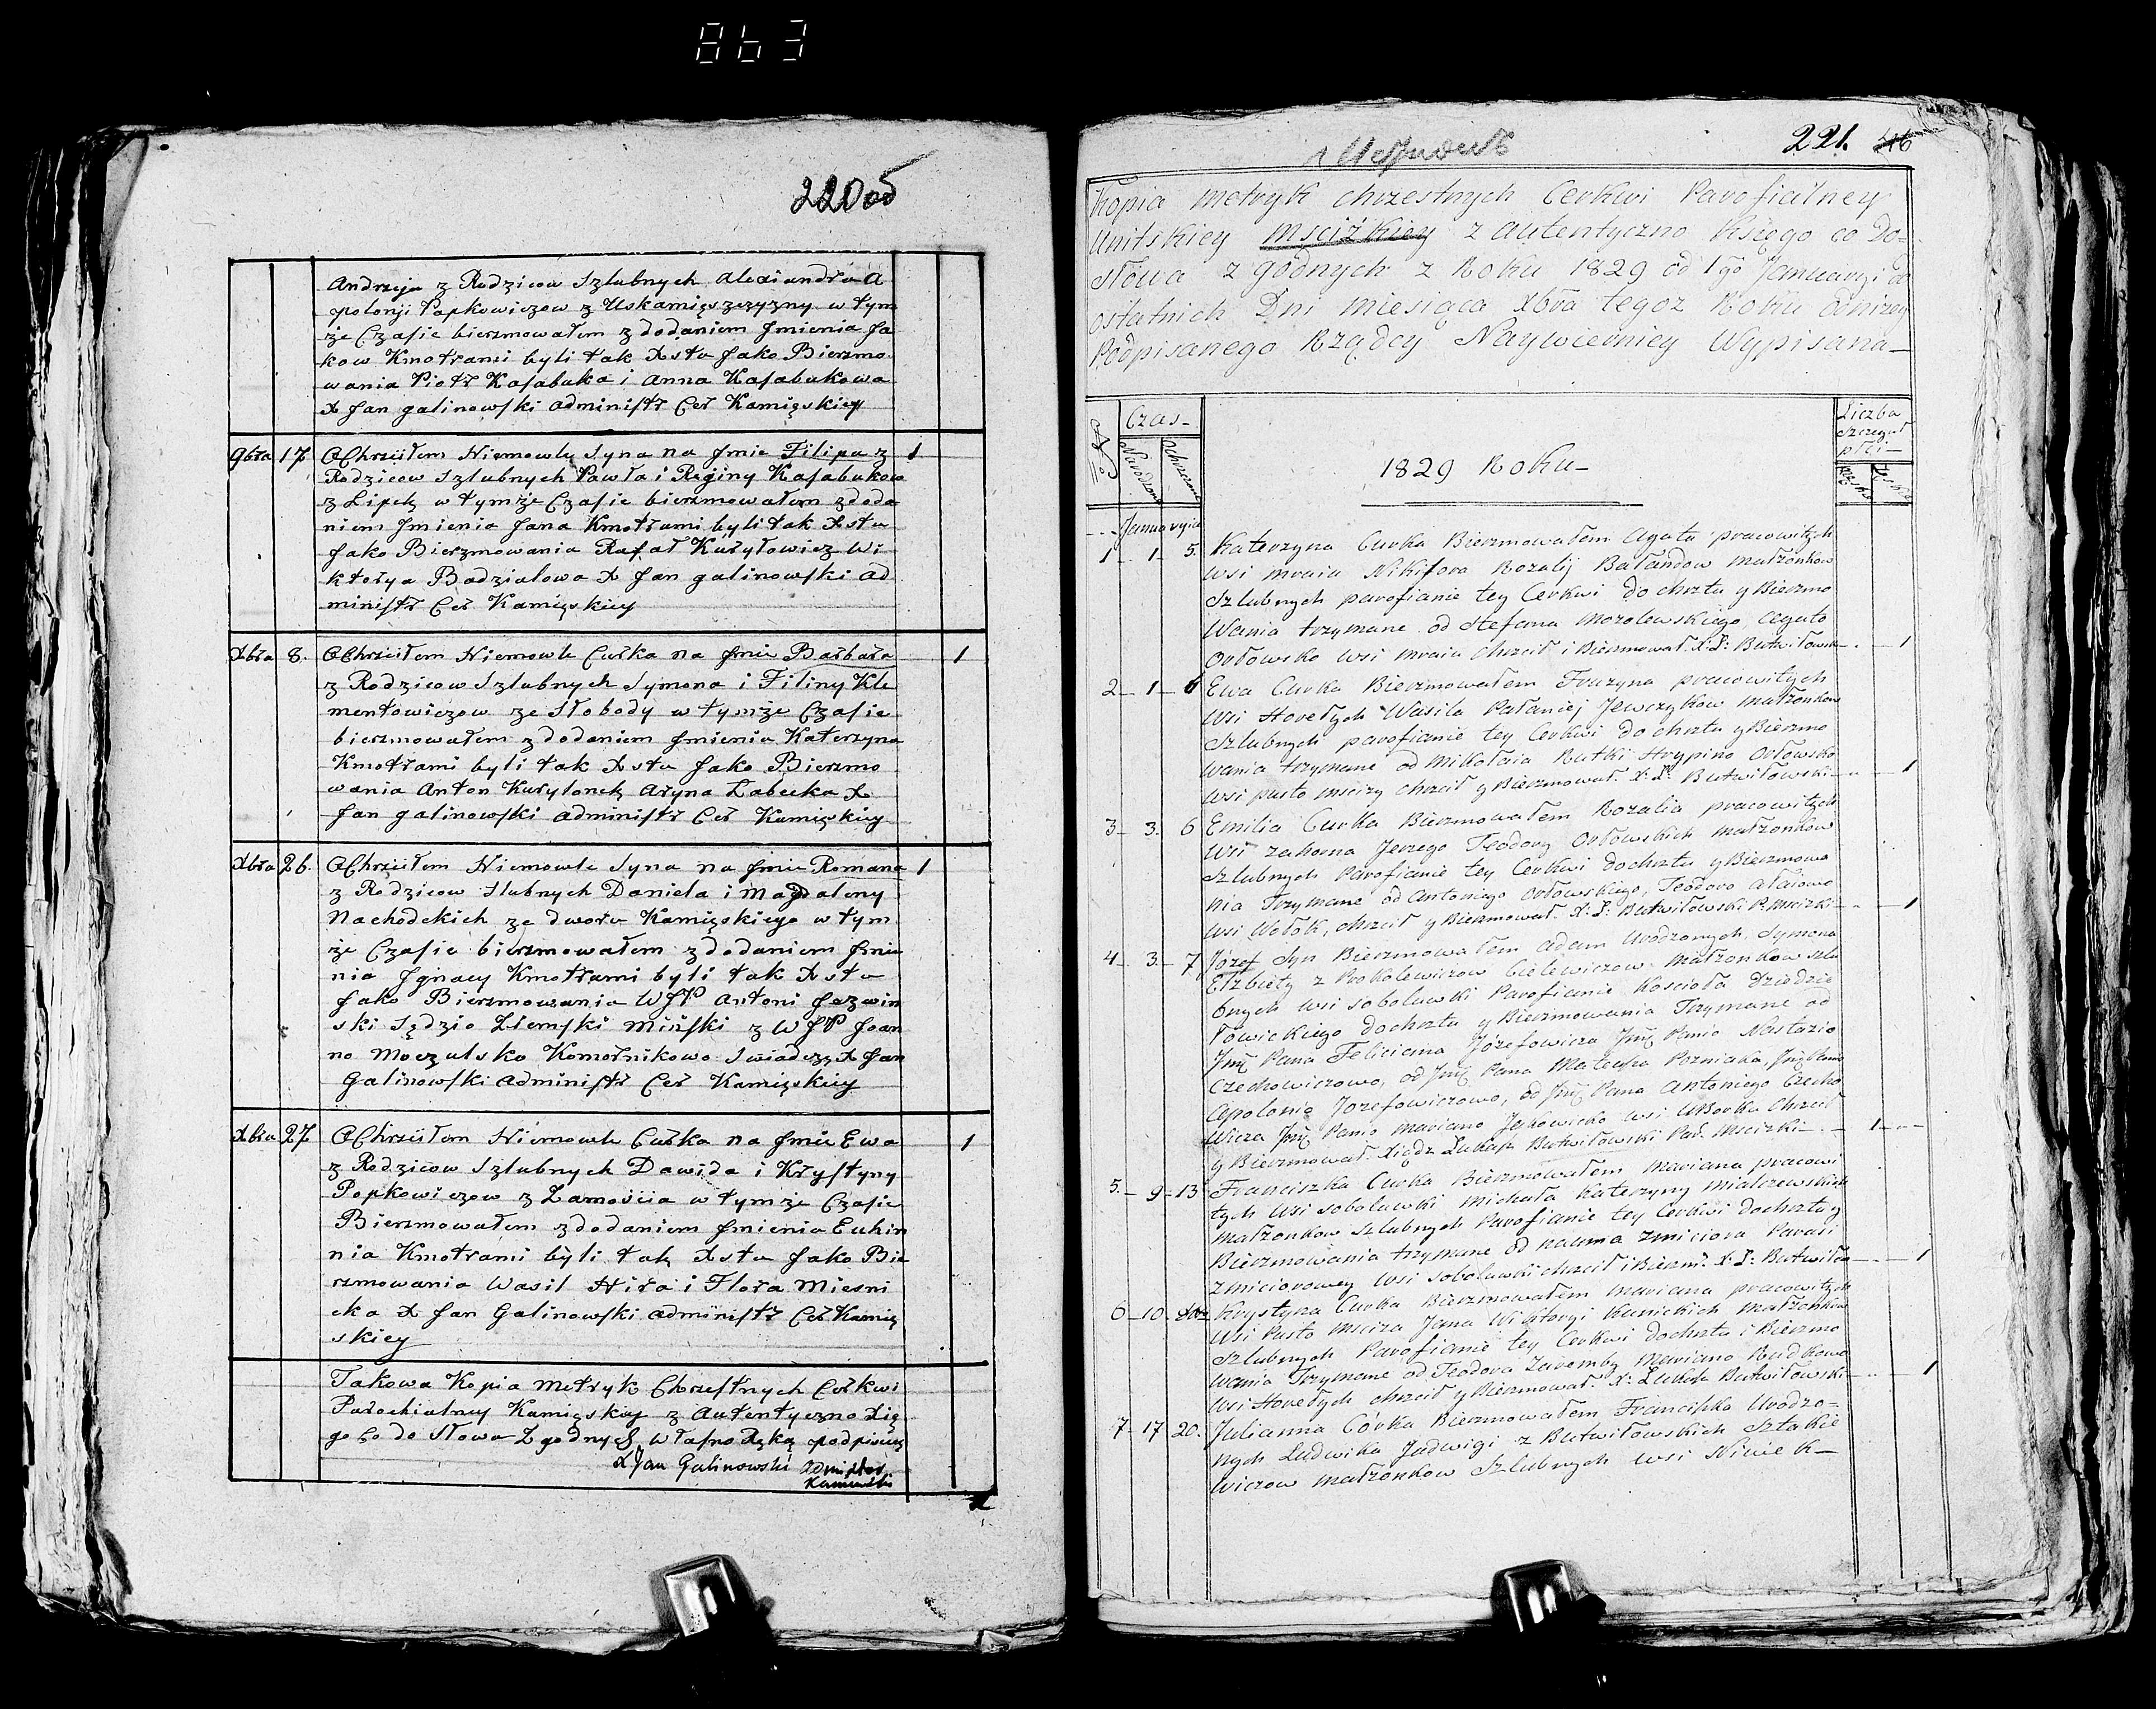 863
220об
Andrzeja z Rodzicow Szlubnych Alexandra A
polonji Papkowiczow z Uskamięszczyzny w tym
że Czasie bierzmowałem z dodaniem Jmienia Ja
kow Kmotrami byli tak Xstu Jako Bierzmo
wania Piotr Kasabuka i Anna Kasabukowa
X Jan Galinowski Administr Cer Kamięskiey
9bra 17 OChrzciłem Niemowle Syna na Jmie Filipa z 1
Rodzicow Szlubnych Pawła i Reginy Kasabukow
z Lipek w tymże Czasie bierzmowałem z doda
niem Jmienia Jana Kmotrami byli tak Xstu
Jako Bierzmowania Rafał Kuryłowicz Wi
ktorya Badzialowa X Jan Galinowski Ad
ministr Cer Kamięskiey
Xbra 8. OChrzciłem Niemowle Curka na Jmie Barbara 1
z Rodzicow Szlubnych Symona i Filiny Kle
mentowiczow ze Słobody w tymże Czasie
bierzmowałem z dodaniem Jmienia Katerzyna
Kmotrami byli tak Xstu Jako Bierzmo
wania Anton Kurylonek Aryna Labecka X
Jan Galinowski Administr Cer Kamięskiey
Xbra 26. OChrzciłem Niemowle Syna na Jmie Romana 1
z Rodzicow Slubnych Daniela i Magdaleny
Nachodckich ze dworu Kamięskiego w tym
że Czasie bierzmowałem z dodaniem Jmie
nia Jgnacy Kmotrami byli tak Xstu
Jako Bierzmowania WJP Antoni Jazwin
ski Sędzio Złemski Miński z WJP Joan
no Moczulsko Komornikowo Swiadczę X Jan
Galinowski Administr Cer Kamięskiey
Xbra 27 OChrzciłem Niemowle Curka na Jmie Ewa 1
z Rodzicow Szlubnych Dawida i Krystyny
Popkowiczow z Zamościa w tymże Czasie
Bierzmowałem z dodaniem Jmienia Euhin
nia Kmotrami byli tak Xstu Jako Bie
rzmowania Wasil Hira i Flora Miesni
cka X Jan Galinowski Administr Cer Kamię
skiey
Takowa Kopia Metryk Chrzestnych Cerkwi
Parochialney Kamięskiey z Autentyczno Xię
go Co do Słowa Zgodnych Własno Ręką podpisuię
X Jan Galinowski Administrator
Kamieński
221. 46
Kopia metryk chrzestnych Cerkwi Parofialney
Unitskiey Mściżkiey z autentyczno Xsięgo co Do=
Słowa zgodnych z Roku 1829 od 1go Januaryi do
ostatnich Dni miesiąca Xbra tegoz Roku odniżey
Podpisanego Rządcy Naywierniey Wypisana
No Czas Liczba szczegul płci
Narodzenia Ochrzczenia Męzka Żęska
1829 Roku
Januaryia
1 1 5. Katerzyna Curka Bierzmowałem Agata pracowitych
Wsi Mraia Nikifora Rozalij Bałandow małżonkow
Szlubnych parofianie tey Cerkwi do chrztu y Bierzmo
Wania trzymane od Stefana Morolewskiego Agato
Orłowsko wsi Mraia Chrzcił i Bierzmował X: Ł: Butwiłowsk 1
2 1 6 Ewa Curka Bierzmowałem Fruzyna pracowitych
Wsi Horełych Wasila Pałaniej Jewczykow małżonkow
Szlubnych parofianie tey Cerkwi do chrztu y Bierzmo
wania trzymane od Mikołaia Rutki Hrypino Orłowsko
wsi pusto Mscizy chrzcił y Bierzmował X: Ł: Butwiłowski 1
3 3. 6 Emilia Curka Bierzmowałem Rozalia pracowitych
Wsi Zahoma Jerzego Teodory Orłowskich małżonkow
Szlubnych Parofianie tey Cerkwi do chrztu y Bierzmowa
nia Trzymane od Antoniego Orłowskiego, Teodoro Ałaiowo
wsi Wołok, chrzcił y Bierzmował X: Ł: Butwiłowski P. Mscizki 1
4 3 7 Józef Syn Bierzmowałem Adam Urodzonych Symona
Elzbiety z Prokolewiczow Cielewiczow Małżonkow szlu
bnych wsi sobolewki Parofianie Kościoła Dziedzic
łowickiego do chrztu y Bierzmowania Trzymane od
Jmę Pana Feliciana Józefowicza Jmę Panio Nastazio
Czechowiczowo, od Jmę Pana Mateusza Pozniaka, Jmę Panio
Apolonio Jozefowiczowo, od Jmę Pana Antoniego Czecho
Wicza Jmę Panio Mariano Jeskowicko wsi UBorka Chrzcił
y Bierzmował Xiądz Łukasz Butwiłowski Par. Mscizki 1
5. 9 13 Franciszka Curka Bierzmowałem Mariana pracowi
tych wsi sobolewki Michała Katerzyny Mialczewskich
małżonkow szlubnych Parofianie tey Cerkwi do chrztu y
Bierzmowania trzymane od Nauma Zmiciora Parasi
Zmiciorowey wsi sobolewki chrzcił i Bierzm: X: Ł: Butwiło 1
6 10 Krystyna Curka Bierzmowałem Mariana pracowitych
Wsi Pusto Msciza Jana Wiktoryi Kunickich małżonkow
Szlubnych Parofianie tey Cerkwi do chrztu i Bierzmo
wania Trzymane od Teodora Zaremby Mariano Rudkowo
wsi Horełych chrzcił y Bierzmował X: Łukasz Butwiłowski 1
7 17 20. Julianna Córka Bierzmowałem Franciszka Urodzo=
nych Ludwika Jadwigi z Butwiłowskich Szłakie
wiczow małżonkow Szlubnych wsi Niwek